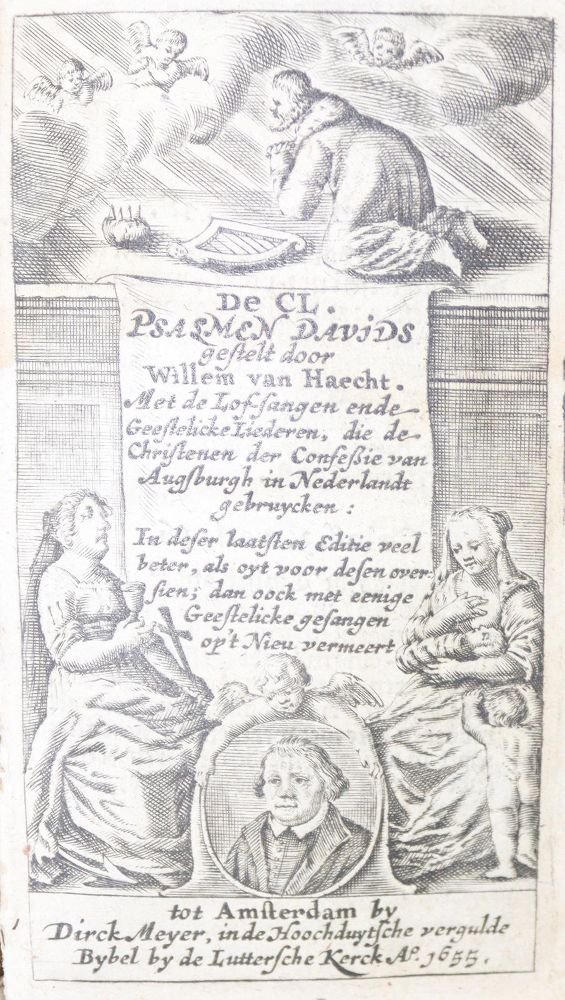 De CL.
PSALMEN DAVIDS
geſtelt door
Willem van Haecht.
Met de Lof-ſangen ende
Geeſtelicke Liederen, die de
Chriſtenen der Confeßie van
Augſburgh in Nederlandt
gebruycken:
In deſer laatſten Editie veel
beter, als oyt voor deſen over-
ſien; dan oock met eenige
Geeſtelicke geſangen
op't Nieu vermeert
tot Amſterdam by
Dirck Meyer, in de Hoochduytſche vergulde
Bybel by de Lutterſche Kerck Aº. 1655.